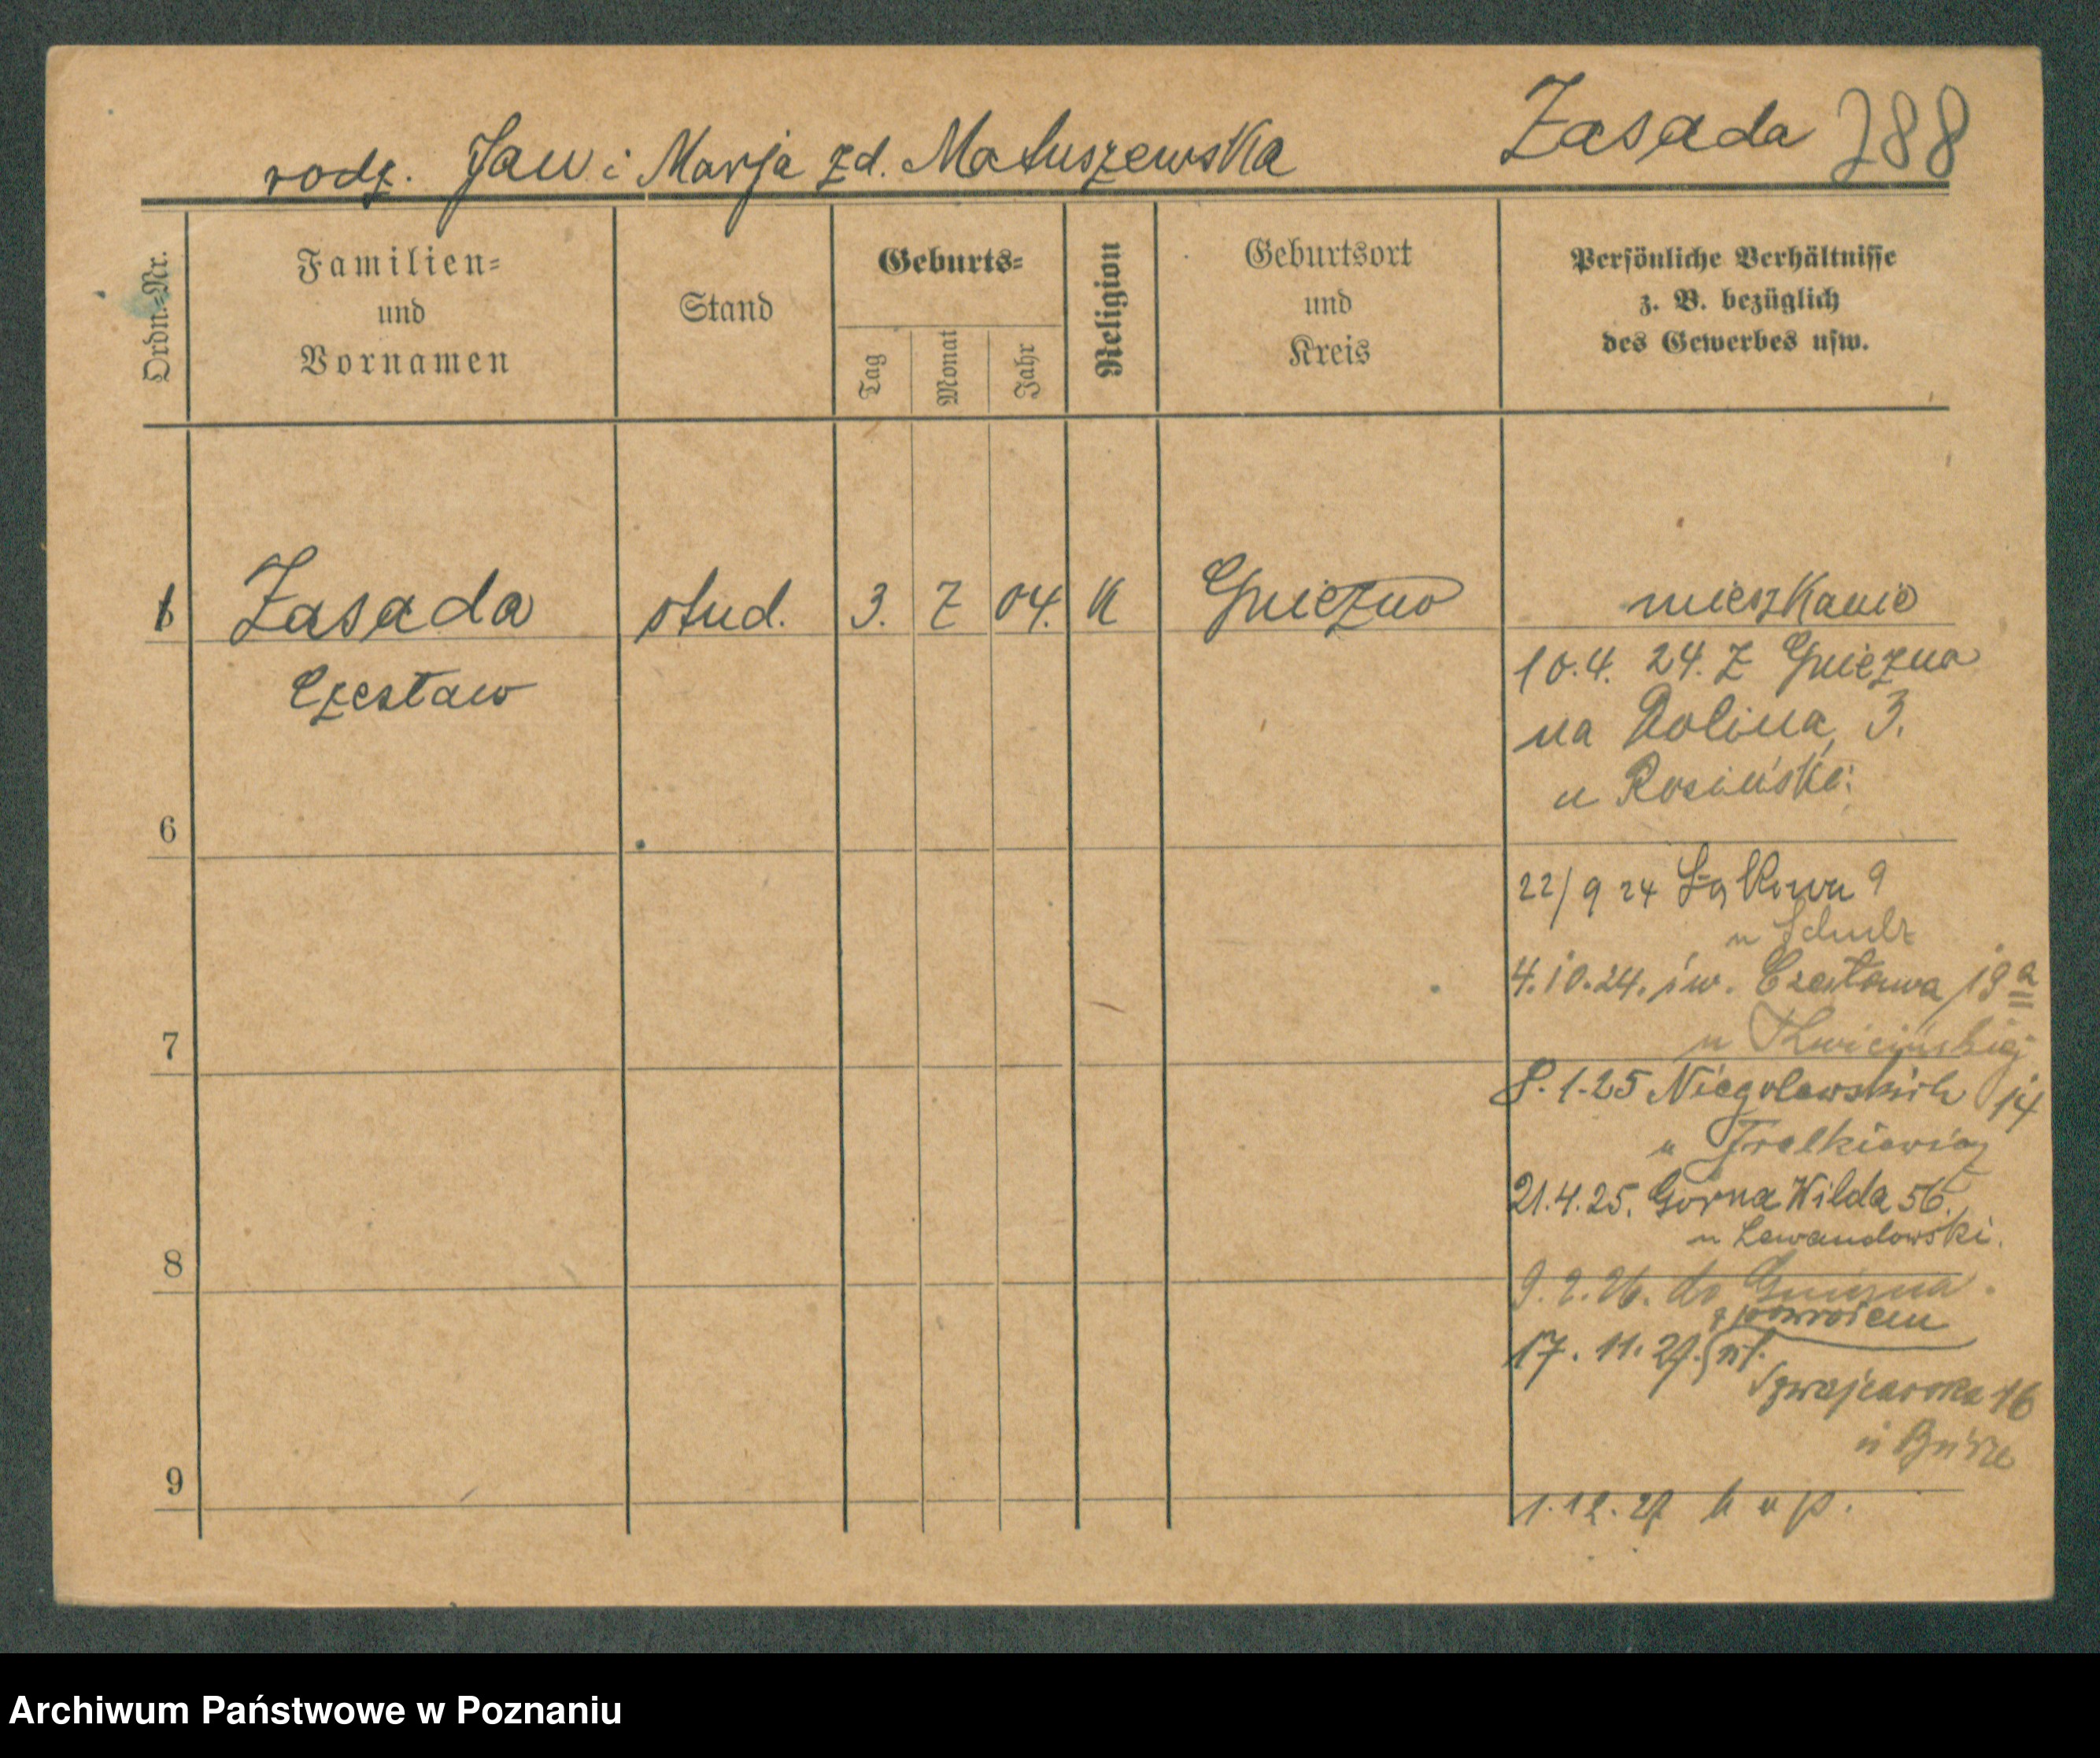 Zasada 288
rodz. Jan i Marja zd. Matuszewska
Ordn.=Nr.
Familien=
und
Vornamen
Stand
Geburts=
Tag
Monat
Jahr
Religion
Geburtsort
und
Kreis
Persönliche Verhältnisse
z. B. bezüglich
des Gewerbes usw.
1 Zasada stud. 3. 7 04. K Gniezno mieszkanie
Czesław
10.4. 24. Z Gniezna
na Dolina 3.
u Rosiński
6
22/9 24 Łąkowa 9
u Schulz
4.10.24. św. Czesława 19 a
u
7
8.1.25 Niegolewskich 14
u
21.4.25. Górna Wilda 56.
u Lewandowski.
8
9.2.26. do Gniezna.
z powrotem
17. 11. 27.
Szwajcarska 16
u
9
1.12.27
Archiwum Państwowe w Poznaniu